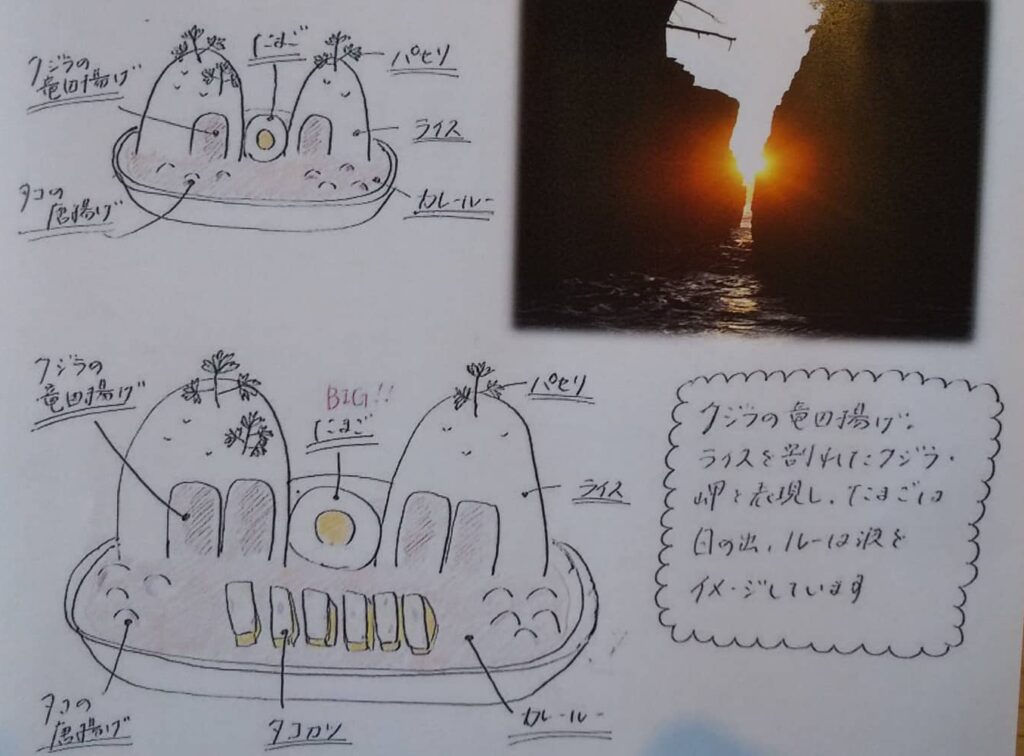 クジラの
竜田揚げ
たまご
パセリ
ライス
タコの
唐揚げ
カレールー
クジラの
竜田揚げ
BIG!!
たまご
パセリ
ライス
タコの
唐揚げ
タコカツ
カレールー
クジラの竜田揚げ。
ライスを割れたクジラ・
岬を表現し、たまごは
日の出、ルーは波を
イメージしています